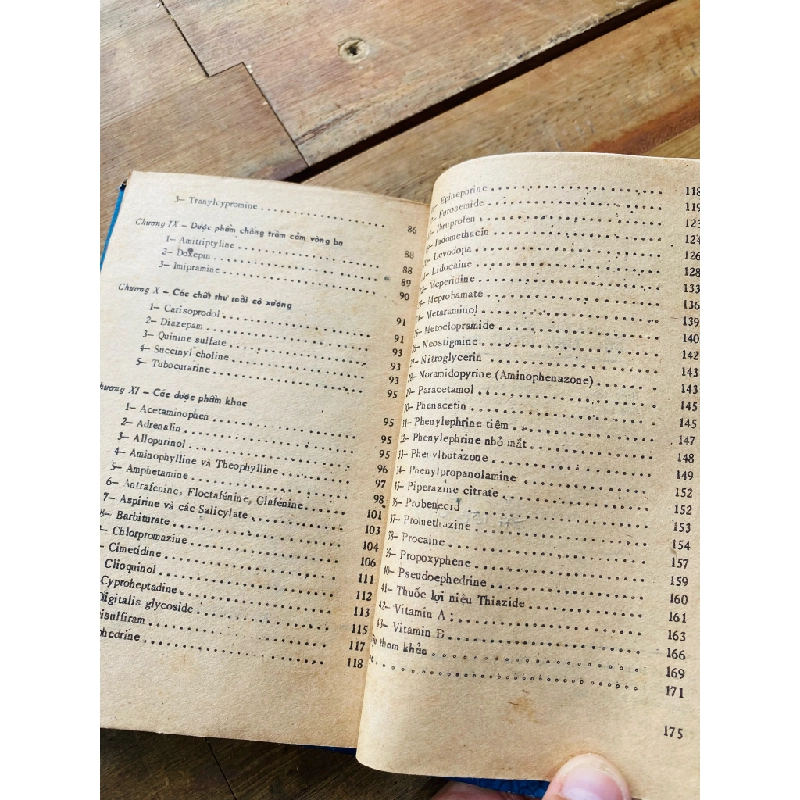 3– Tranylcypromine 86
Chương IX – Dược phẩm chống trầm cảm vòng ba 88
1– Amitriptyline 88
2– Doxepin 89
3– Imipramine 90
Chương X – Các chất thư soãi cơ xương 91
1– Carisoprodol 91
2– Diazepam 93
3– Quinine sulfate 93
4– Succinyl choline 93
5– Tubocurarine 95
Chương XI – Các dược phẩm khác 95
1– Acetaminophen 95
2– Adrenalin 95
3– Allopurinol 95
4– Aminophylline và Theophylline 96
5– Amphetamine 97
6– Antrafenine, Floctafénine, Glafénine 98
7– Aspirine và các Salicylate 101
8– Barbiturate 103
Chlorpromazine 104
Cimetidine 106
Clioquinol 111
Cyproheptadine 112
Digitalis glycoside 113
isulfiram 115
phedrine 117
118
Epinephrine 118
Furosemide 119
Ibuprofen 123
Indomethacin 124
Levodopa 126
Lidocaine 128
Meperidine 133
Meprobamate 136
Metaraminol 139
Metoclopramide 140
Neostigmine 142
Nitroglycerin 143
Noramidopyrine (Aminophenazone) 143
Paracetamol 145
30– Phenacetin 145
31– Phenylephrine tiêm 147
32– Phenylephrine nhỏ mắt 148
33– Phenylbutazone 149
34– Phenylpropanolamine 152
35– Piperazine citrate 152
36– Probenecid 153
37– Promethazine 154
38– Procaine 157
39– Propoxyphene 159
40– Pseudoephedrine 160
41– Thuốc lợi niệu Thiazide 161
42– Vitamin A 163
43– Vitamin B 166
tham khảo 169
171
175